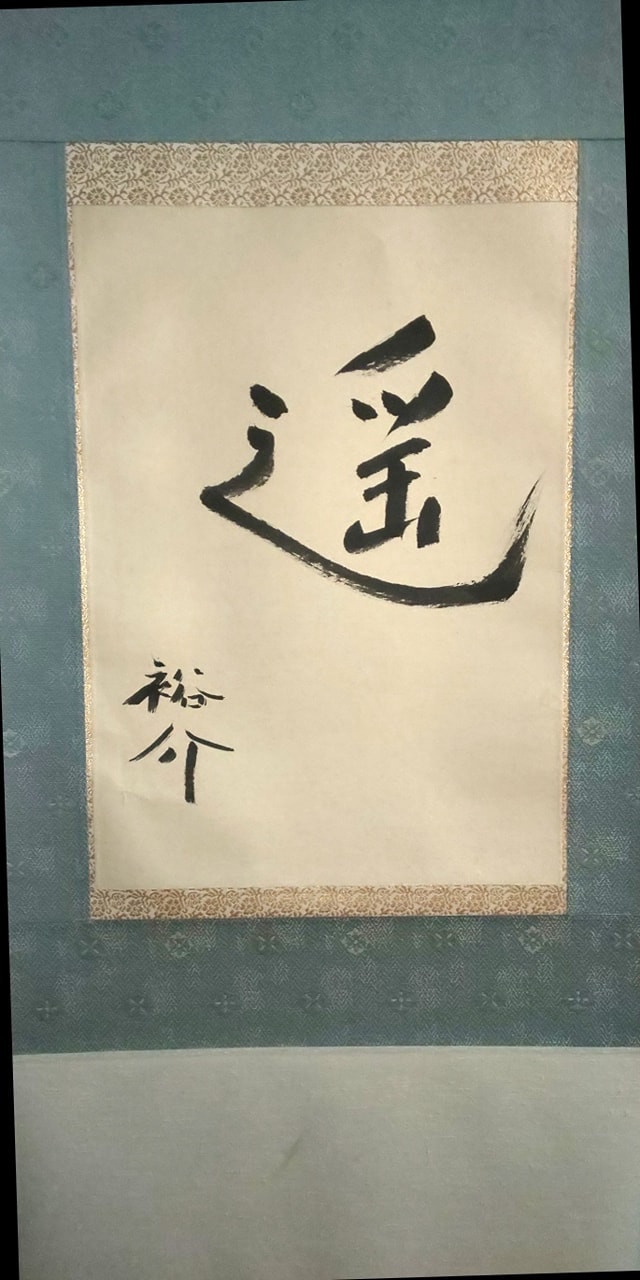 遥
裕介